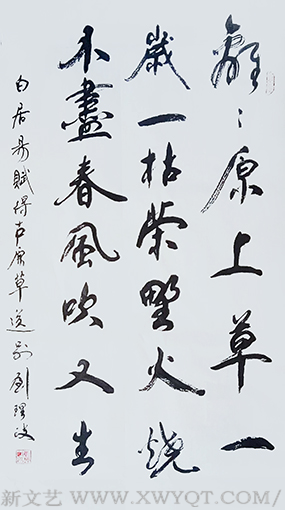 離〻原上草一
歲一枯榮野火燒
不盡春風吹又生
白居易賦得古原草送别 劉
新文艺 WWW.XWYQT.COM/